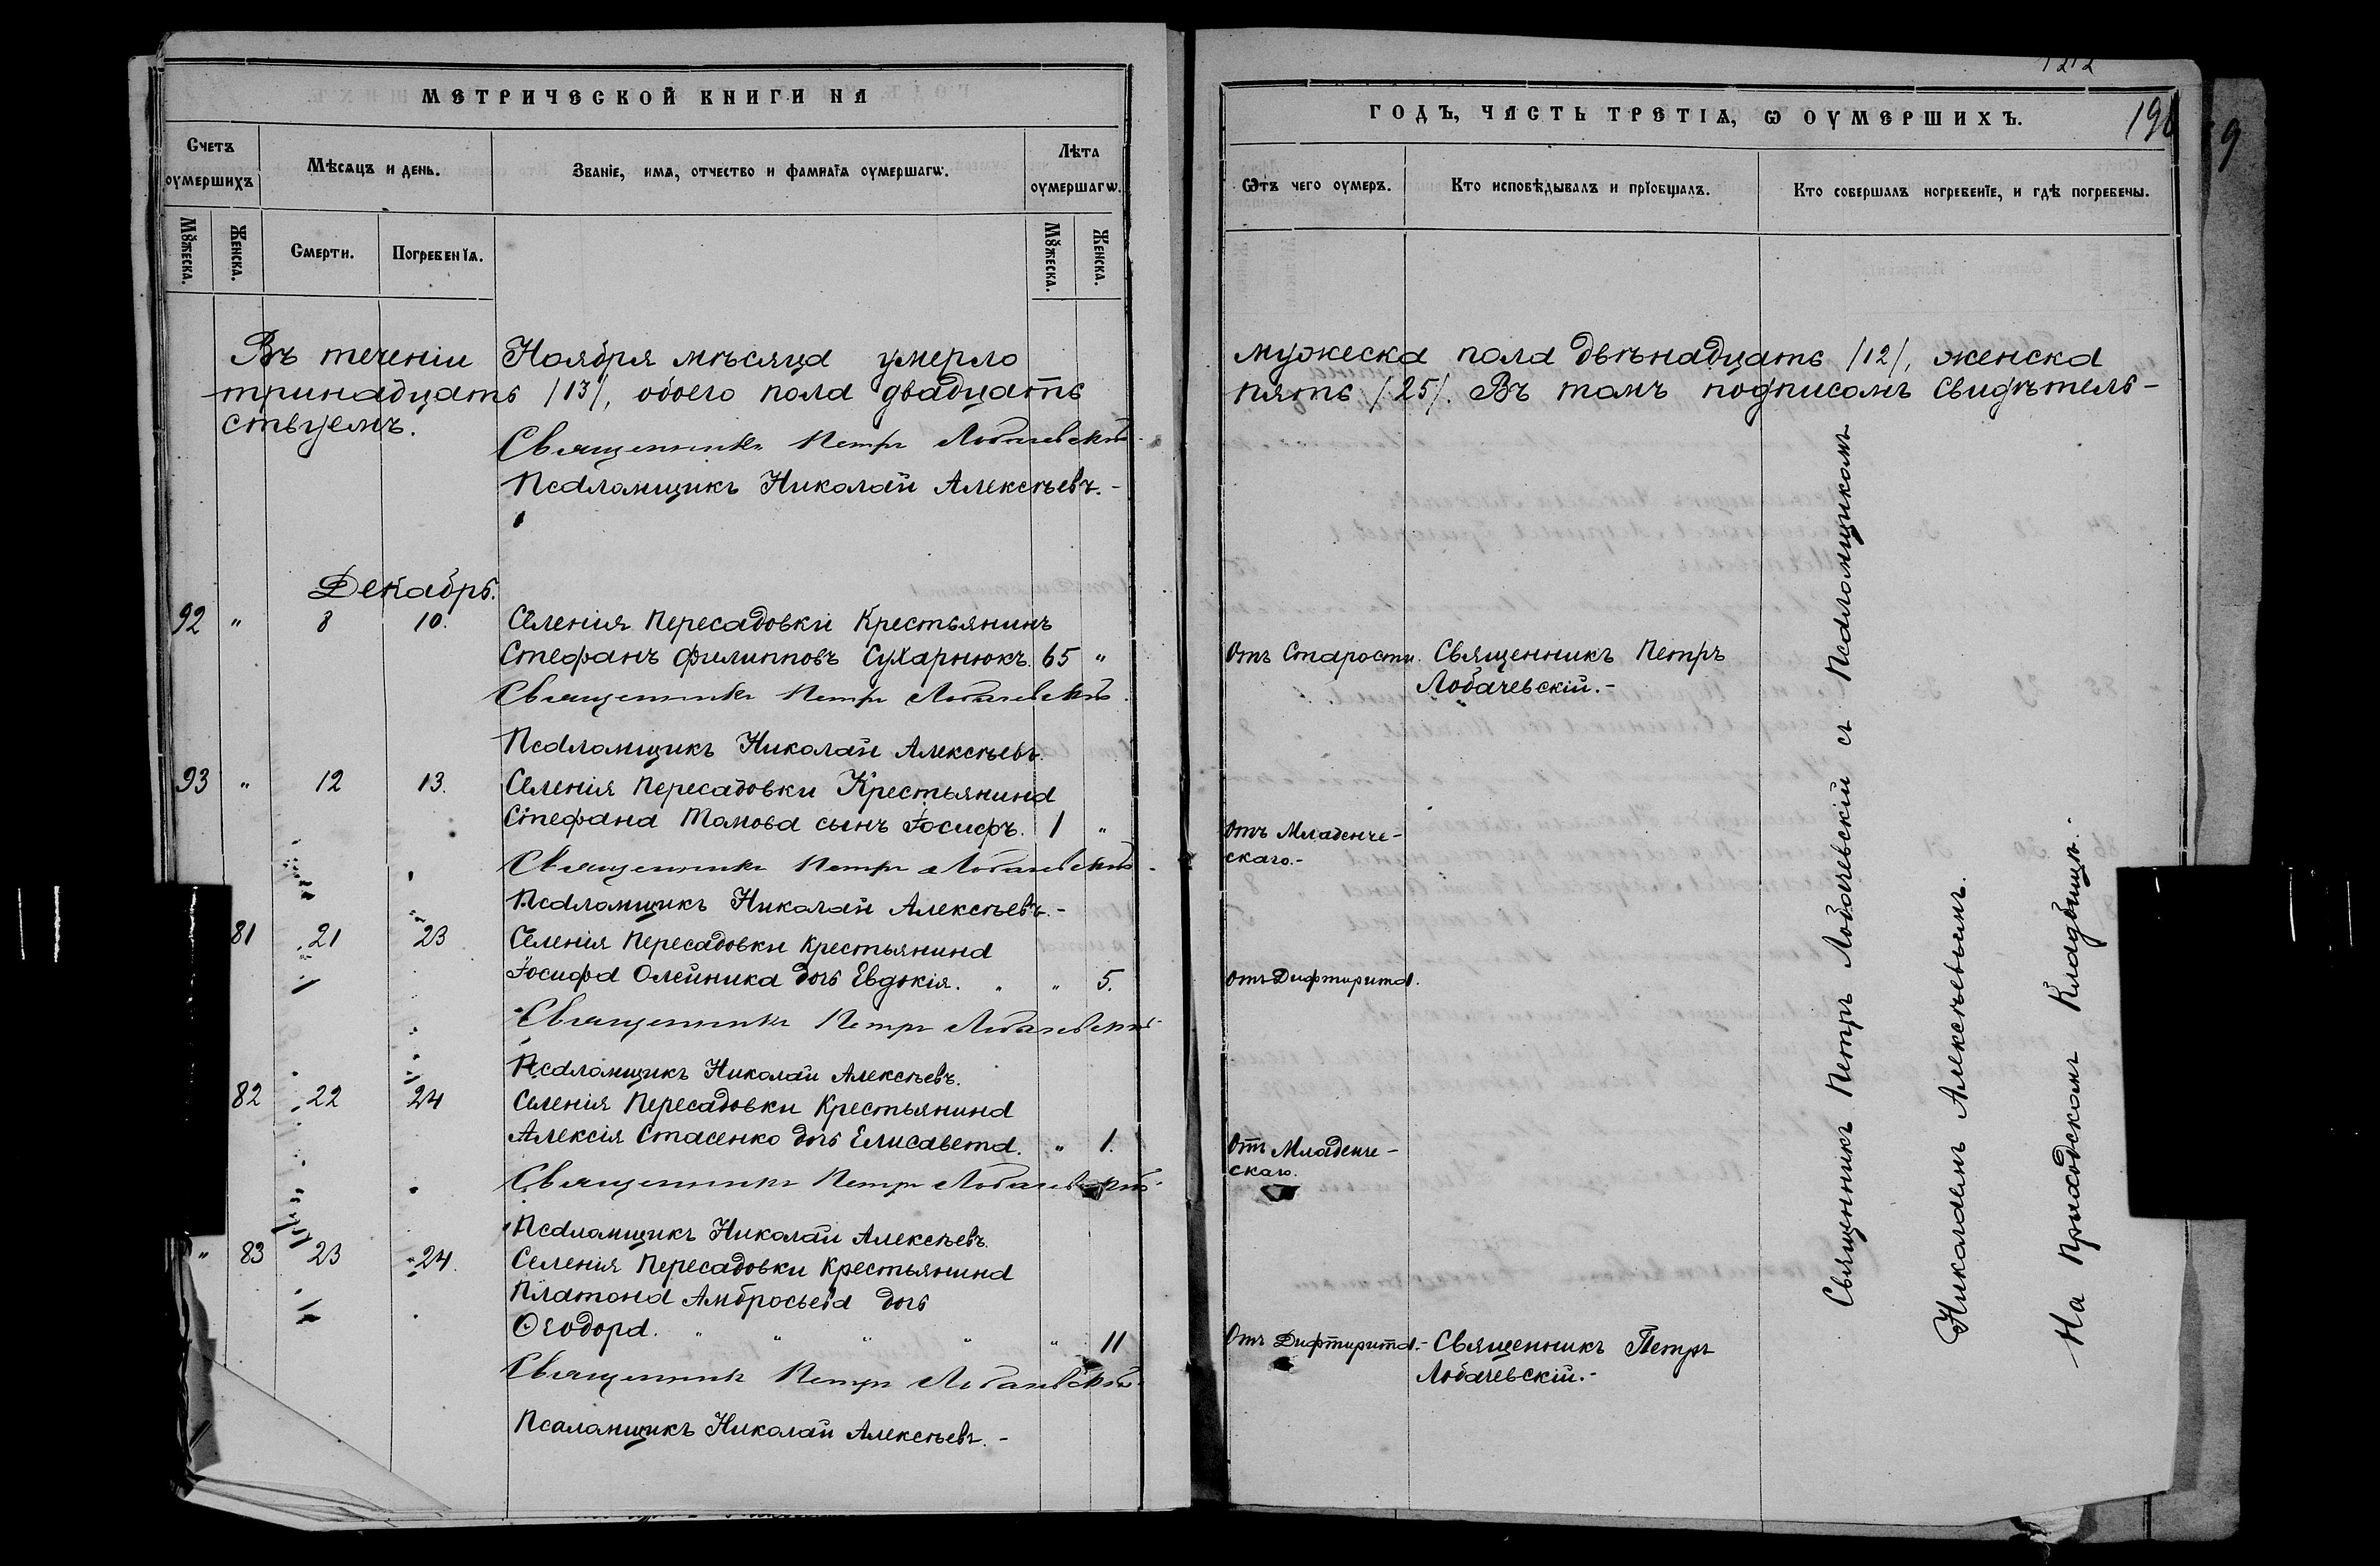 МЕТРИЧЕСКОЙ КНИГИ НА
Счетъ оумершихъ
Мѣсяцъ и день.
Званіе, имя, отчество и фамилія оумершагѡ.
Лѣта оумершагѡ.
Мужеска.
Женска.
Смерти.
Погребенїя.
Мужеска.
Женска.
Въ теченіи Ноября мѣсяца умерло
тринадцать /13/, обоего пола двадцать
ствуемъ.
Священникъ Петръ Лобачевскій
Псаломщикъ Николай Алексѣевъ.-
Декабрь.
92 " 8 10. Селенія Пересадовки Крестьянинъ
Стефанъ Филипповъ Сухарнюкъ. 65 "
Священникъ Петръ Лобачевскій.
Псаломщикъ Николай Алексѣевъ.
93 " 12 13. Селенія Пересадовки Крестьянина
Стефана Томова сынъ Іосифъ. 1 "
Священникъ Петръ Лобачевскій.
Псаломщикъ Николай Алексѣевъ.-
81 21 23 Селенія Пересадовки Крестьянина
Іосифа Олейника дочь Евдокія. " " 5.
Священникъ Петръ Лобачевскій
Псаломщикъ Николай Алексѣевъ.
82 22 24 Селенія Пересадовки Крестьянина
Алексія Стасенко дочь Елисавета. " 1.
Священникъ Петръ Лобачевскій
Псаломщикъ Николай Алексѣевъ.
" 83 23 24. Селенія Пересадовки Крестьянина
Платона Амбросьева дочь
Ѳеодора. " " " " " 11
Священникъ Петръ Лобачевскій
Псаломщикъ Николай Алексѣевъ.-
1212
ГОДЪ, ЧАСТЬ ТРЕТІѦ, Ѡ ОУМЕРШИХЪ.
9
Ѿтъ чего оумеръ.
Кто исповѣдывалъ и прїобщалъ.
Кто совершалъ погребенїе, и гдѣ погребены.
мужеска пола двѣнадцать /12/, женска
пять /25/. Въ томъ подписомъ свидѣтель-
Отъ Старости. Священникъ Петръ
Лобачевскій.-
Отъ Младенче-
скаго.-
Отъ Дифтирита.
Отъ Младенче-
скаго.
Отъ Дифтирита.- Священникъ Петръ
Лобачевскій.-
Священникъ Петръ Лобачевскій съ Псаломщикомъ
Николаемъ Алексѣевымъ.
На Приходскомъ Кладбищѣ.-